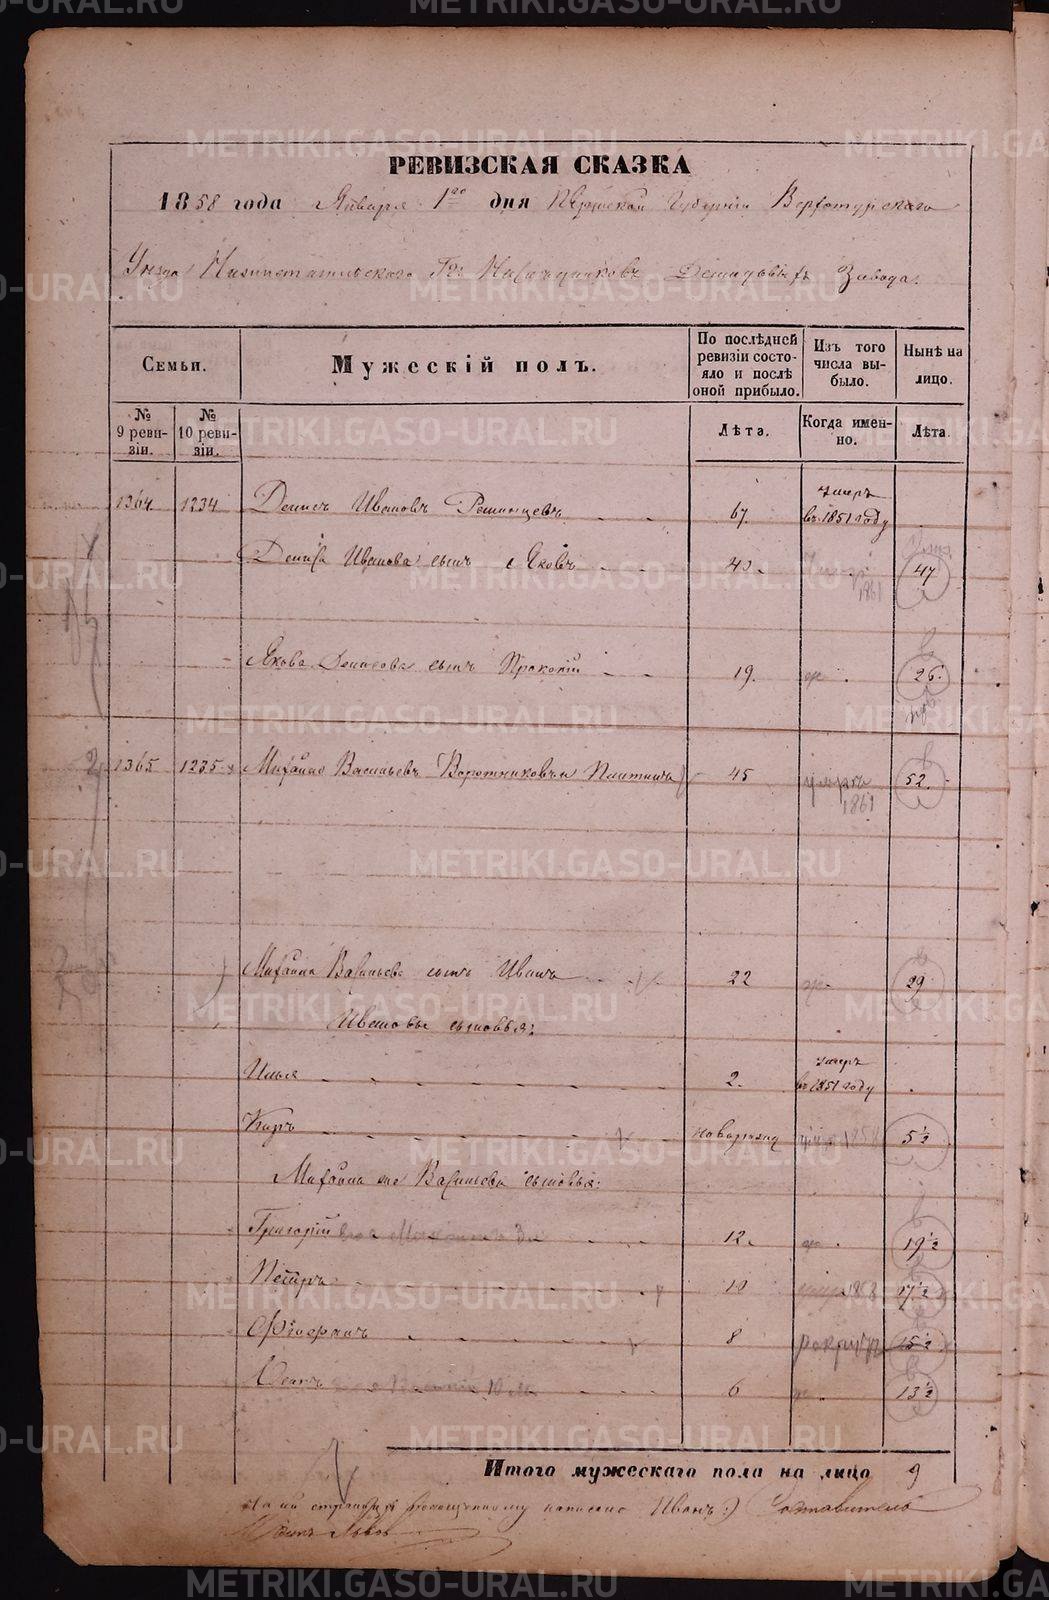 METRIKI.GASO-URAL.RU
РЕВИЗСКАЯ СКАЗКА
1858 года Января 1го дня Пермской Губернии Верхотурскаго
Уезда Нижнетагильскаго Гг. Наследниковъ Демидовыхъ Завода.
Семьи.
Мужескій полъ.
По послѣдней ревизіи состояло и послѣ оной прибыло.
Изъ того числа выбыло.
Нынѣ на лицо.
№ 9 ревизіи.
№ 10 ревизіи.
Лѣта.
Когда именно.
Лѣта.
1364 1234 Денисъ Ивановъ 67. умеръ въ 1851 году
Дениса Иванова сынъ Яковъ 40. 1861 47
Якова Денисова сынъ Прокопій 19. 26.
1365 1235 Михайло Васильевъ Воротниковъ 45 умеръ 1861 52.
Михайла Васильева сынъ Иванъ 22 29
Ивановы сыновья:
Илья 2. умеръ въ 1851 году
Киръ новорожд 1858 5½
Михайла же Васильева сыновья:
Григорій 12. 19½
Петръ 10 1858 17½
8 рекрутъ 15½
6 13½
Итого мужескаго пола на лицо 9
На сей страницѣ по написано Иванъ:) Составитель